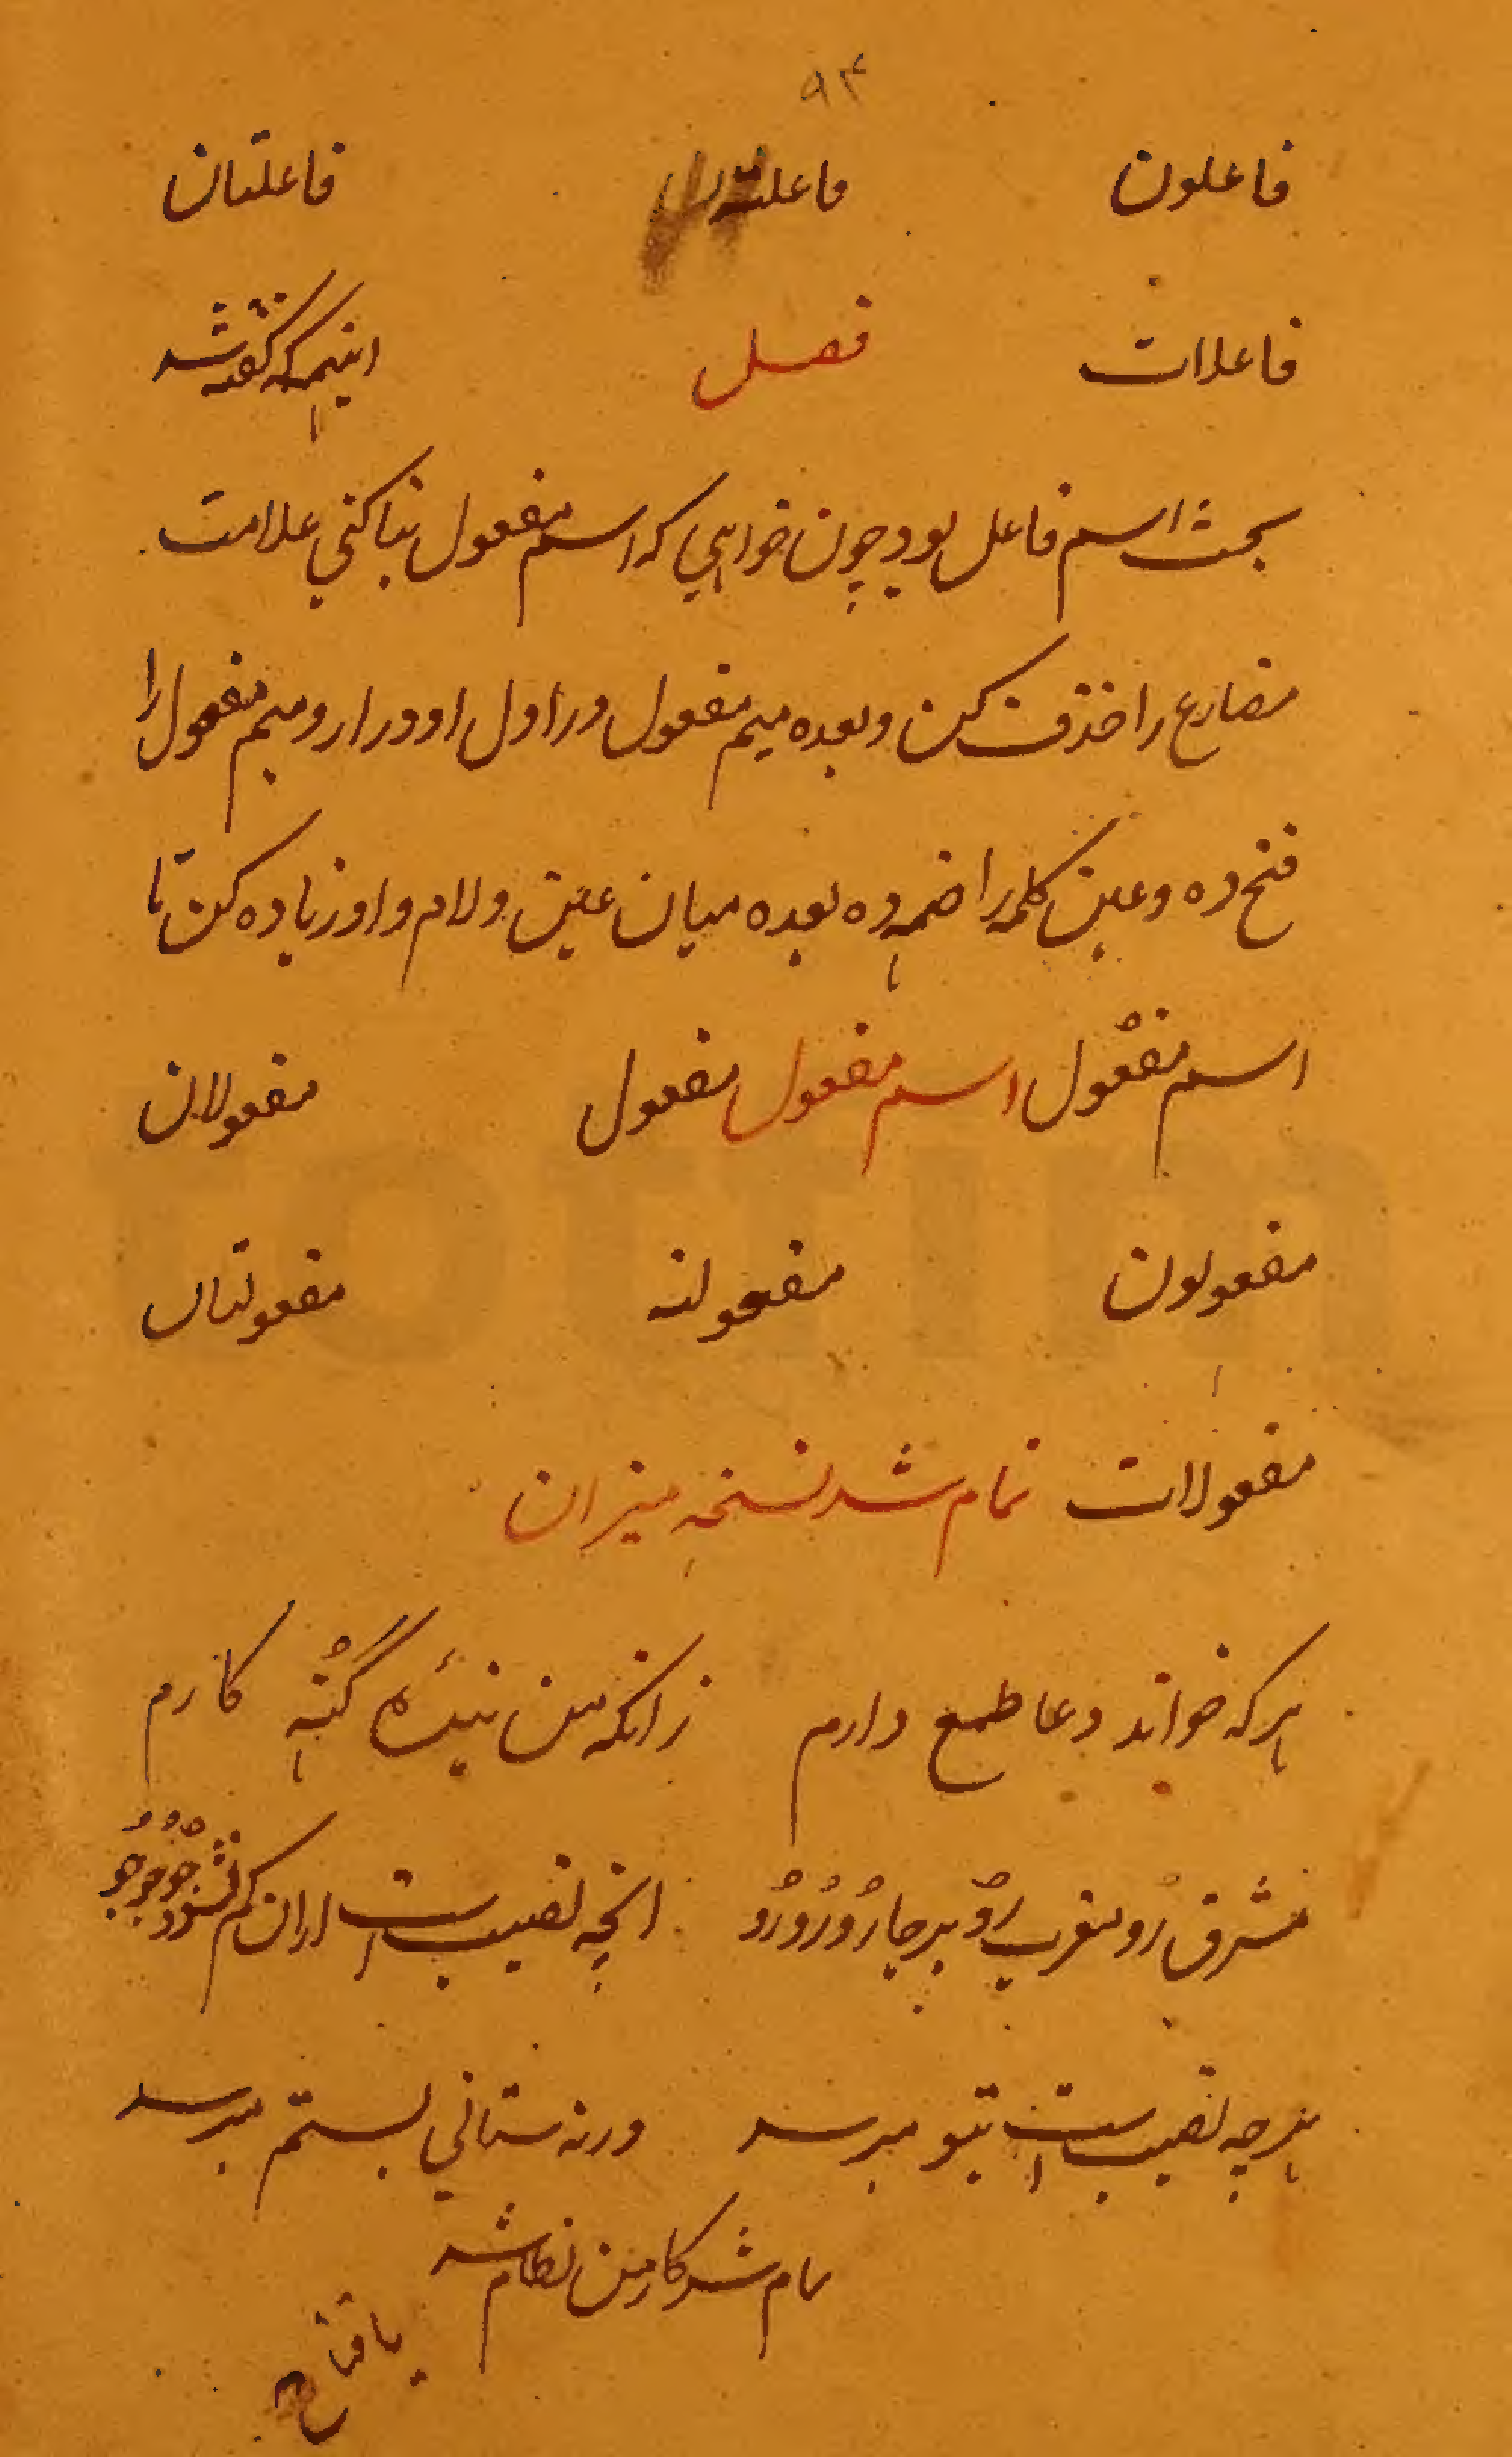 ۹۴
فاعلون فاعلته فاعلتان
فاعلات فصل اینهمه که گفته شد
بحث اسم فاعل بود چون خواهی که اسم مفعول بنا کنی علامت
مضارع را حذف کن و بعده میم مفعول در اول او در ار و میم مفعول را
فتح ده و عین کلمه را ضمه ده بعده میان عین و لام واو زیاده کن تا
اسم مفعول اسم مفعول مفعول مفعولان
مفعولون مفعولته مفعولتان
مفعولات تمام شد نسخه میزان
هر که خواند دعا طمع دارم زانکه من بنیدۀ گنه کارم
مشرق رو مغرب رو هر جا رو رو رو انچه نصیب است ازان کم نشود جو جو جو
هر چه نصیب است بتو میرسد ورنه ستانی بستم میرسد
تمام شد کار من نظام شد
یا فتاح